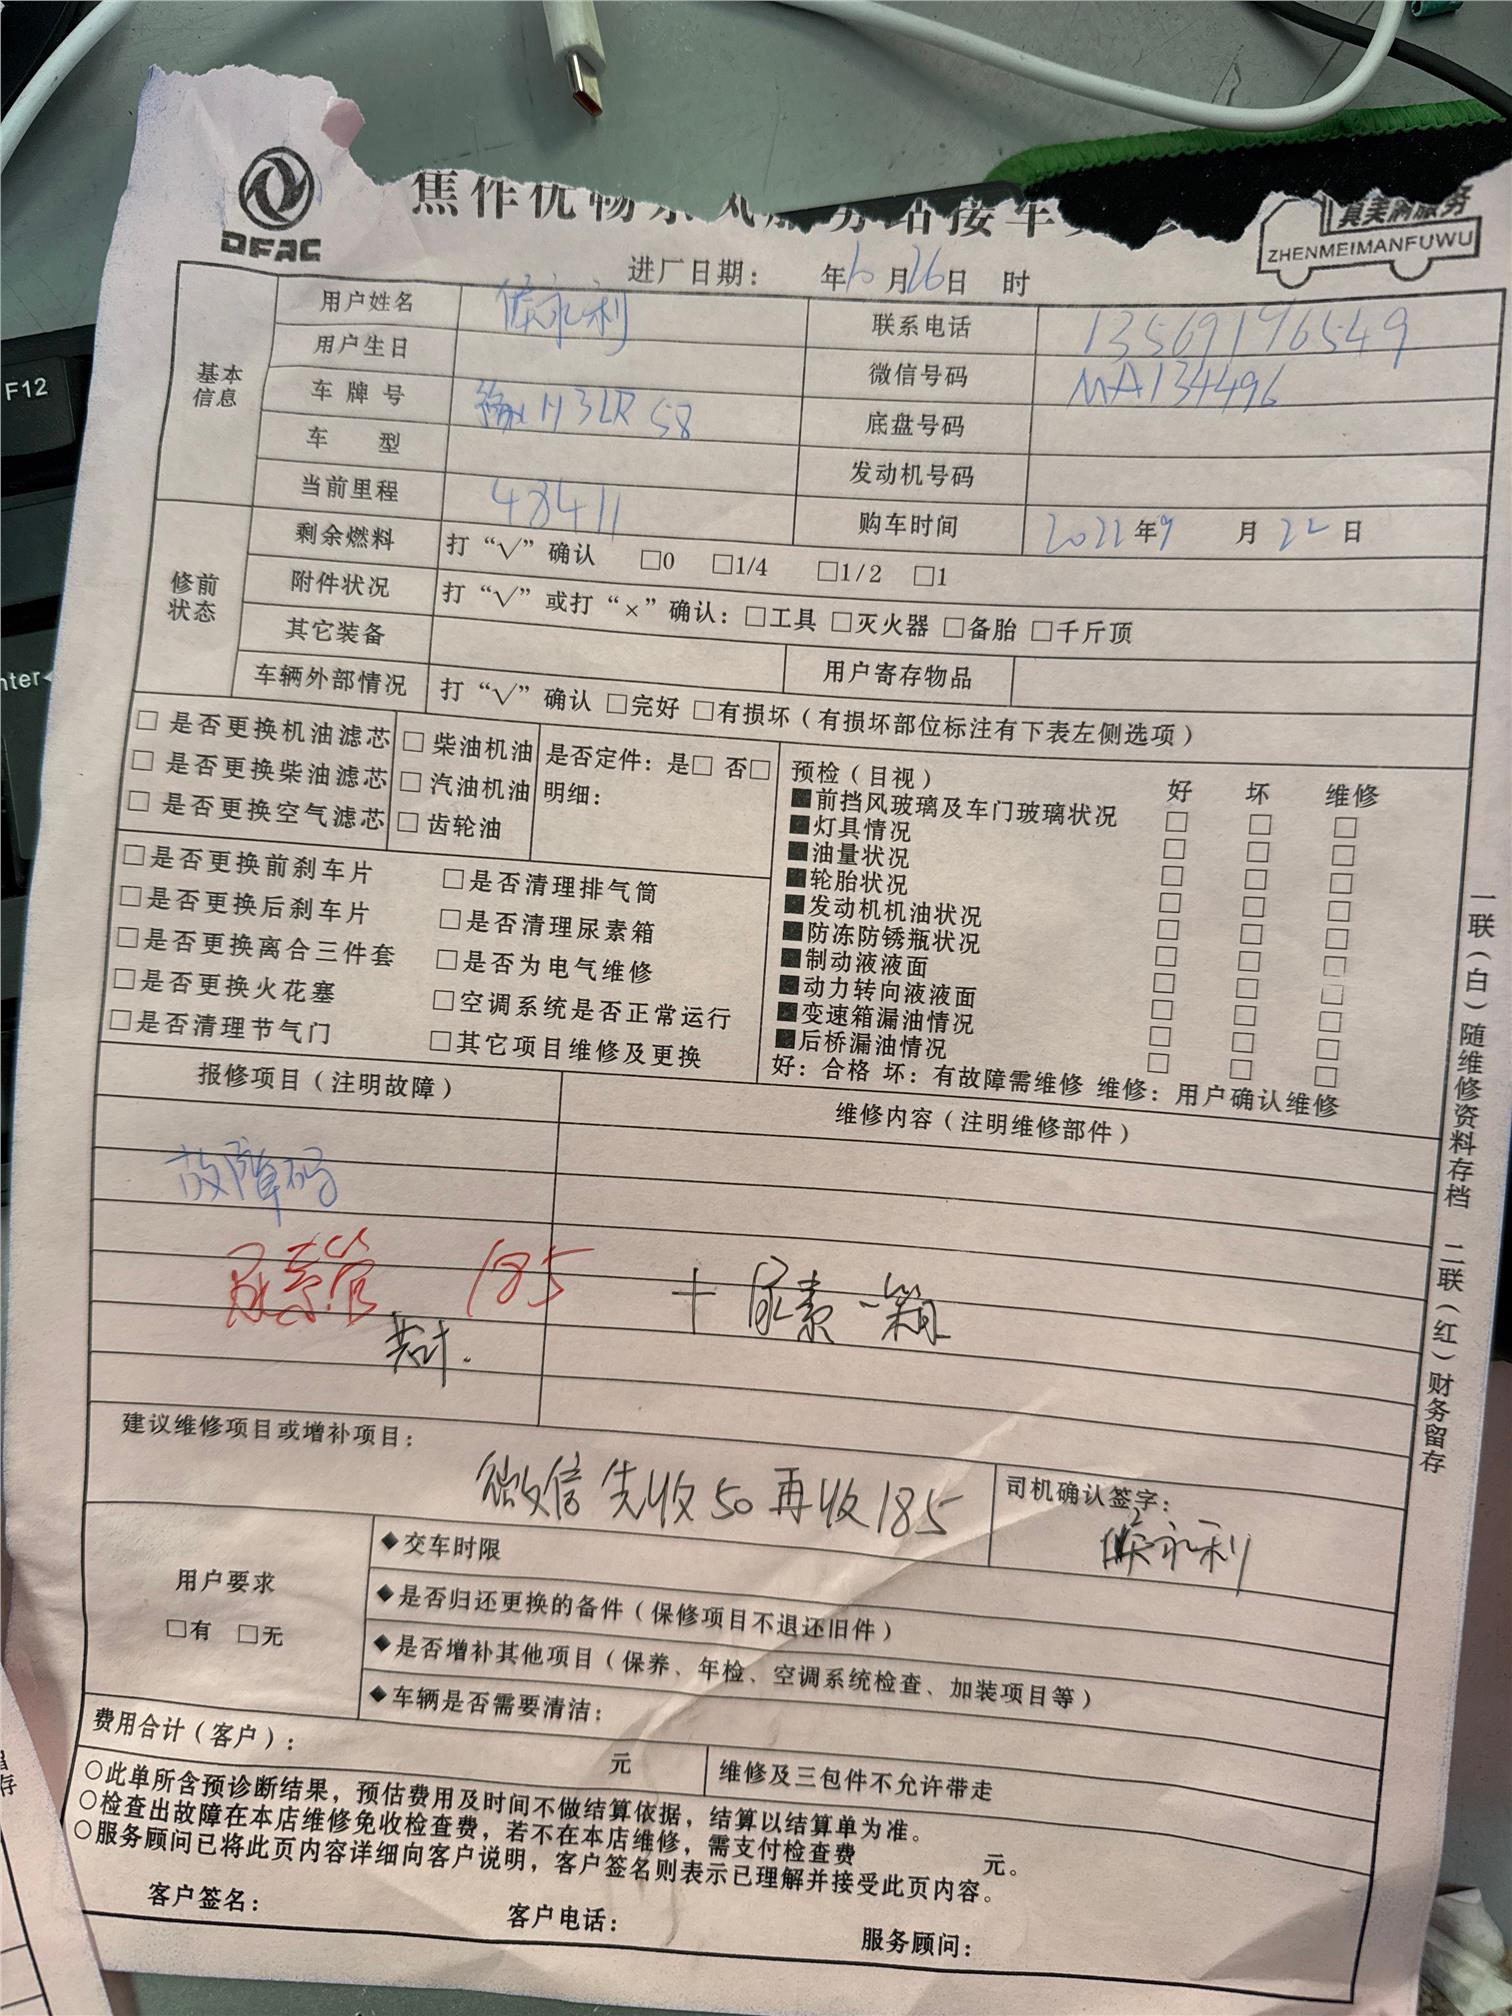 F12
nter
DFAC
焦作优畅东风服务站接车
真美满服务
ZHENMEIMANFUWU
进厂日期： 年10月26日 时
基本信息
用户姓名 侯永利 联系电话 13569196549
用户生日 微信号码 MA134496
车牌号 豫H3LR58 底盘号码
车 型 发动机号码
当前里程 48411 购车时间 2022年9月22日
修前状态
剩余燃料 打“√”确认 □0 □1/4 □1/2 □1
附件状况 打“√”或打“×”确认：□工具 □灭火器 □备胎 □千斤顶
其它装备 用户寄存物品
车辆外部情况 打“√”确认 □完好 □有损坏（有损坏部位标注有下表左侧选项）
□ 是否更换机油滤芯
□ 是否更换柴油滤芯
□ 是否更换空气滤芯
□ 柴油机油
□ 汽油机油
□ 齿轮油
是否定件：是□ 否□
明细：
□是否更换前刹车片
□是否更换后刹车片
□是否更换离合三件套
□是否更换火花塞
□是否清理节气门
□是否清理排气筒
□是否清理尿素箱
□是否为电气维修
□空调系统是否正常运行
□其它项目维修及更换
预检（目视） 好 坏 维修
■前挡风玻璃及车门玻璃状况 □ □ □
■灯具情况 □ □ □
■油量状况 □ □ □
■轮胎状况 □ □ □
■发动机机油状况 □ □ □
■防冻防锈瓶状况 □ □ □
■制动液液面 □ □ □
■动力转向液液面 □ □ □
■变速箱漏油情况 □ □ □
■后桥漏油情况 □ □ □
好：合格 坏：有故障需维修 维修：用户确认维修
报修项目（注明故障） 维修内容（注明维修部件）
故障码
尿素管 185 + 尿素一箱
共计.
建议维修项目或增补项目：
微信先收50再收185
司机确认签字：
侯永利
用户要求
□有 □无
◆交车时限
◆是否归还更换的备件（保修项目不退还旧件）
◆是否增补其他项目（保养、年检、空调系统检查、加装项目等）
◆车辆是否需要清洁：
费用合计（客户）： 元 维修及三包件不允许带走
○此单所含预诊断结果，预估费用及时间不做结算依据，结算以结算单为准。
○检查出故障在本店维修免收检查费，若不在本店维修，需支付检查费 元。
○服务顾问已将此页内容详细向客户说明，客户签名则表示已理解并接受此页内容。
客户签名： 客户电话： 服务顾问：
一联（白）随维修资料存档 二联（红）财务留存